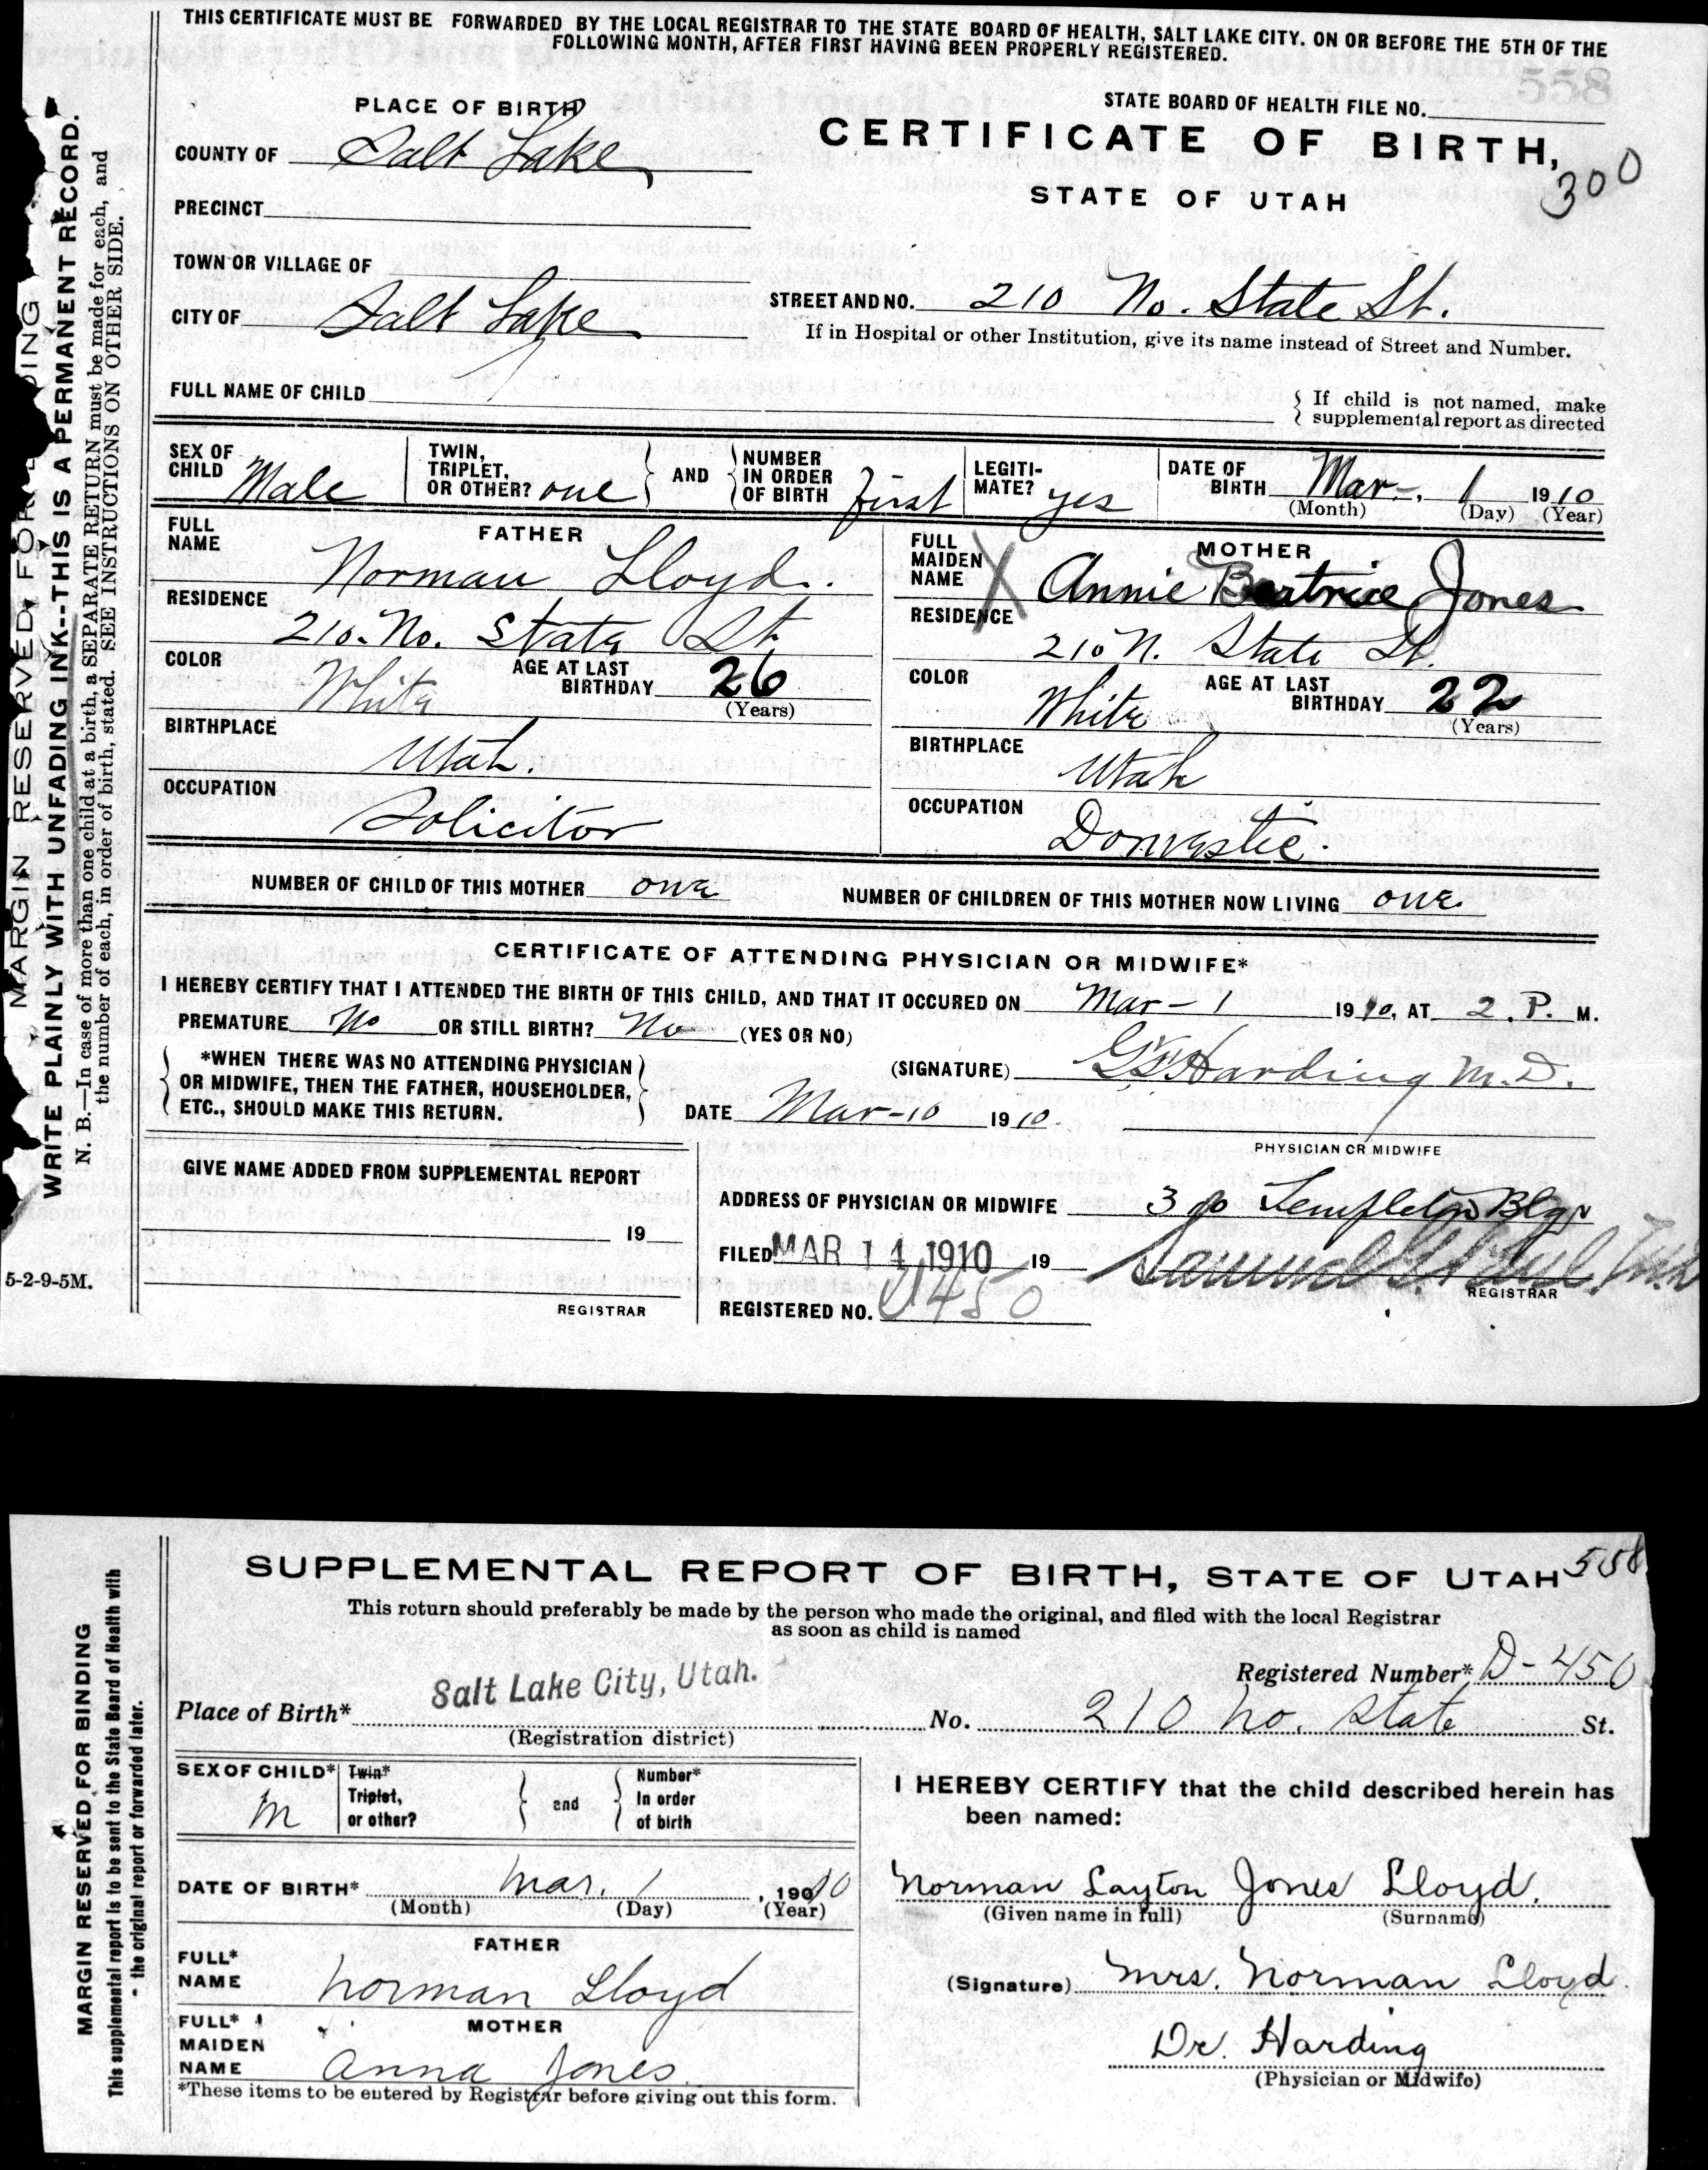 THIS CERTIFICATE MUST BE FORWARDED BY THE LOCAL REGISTRAR TO THE STATE BOARD OF HEALTH, SALT LAKE CITY, ON OR BEFORE THE 5TH OF THE
FOLLOWING MONTH, AFTER FIRST HAVING BEEN PROPERLY REGISTERED.
558
PLACE OF BIRTH
STATE BOARD OF HEALTH FILE NO.
COUNTY OF Salt Lake
CERTIFICATE OF BIRTH,
300
STATE OF UTAH
PRECINCT
TOWN OR VILLAGE OF
CITY OF Salt Lake
STREET AND NO. 210 No. State St.
If in Hospital or other Institution, give its name instead of Street and Number.
FULL NAME OF CHILD
{ If child is not named, make
supplemental report as directed
SEX OF CHILD Male
TWIN, TRIPLET, OR OTHER? one } AND { NUMBER IN ORDER OF BIRTH first
LEGITI-MATE? yes
DATE OF BIRTH Mar-. 1 1910
(Month) (Day) (Year)
FATHER
FULL NAME Norman Lloyd.
RESIDENCE 210. No. State St
COLOR White
AGE AT LAST BIRTHDAY 26
(Years)
BIRTHPLACE Utah.
OCCUPATION Solicitor
MOTHER
FULL MAIDEN NAME X Annie Beatrice Jones
RESIDENCE 210 N. State St.
COLOR White
AGE AT LAST BIRTHDAY 22
(Years)
BIRTHPLACE Utah
OCCUPATION Domestic.
NUMBER OF CHILD OF THIS MOTHER one
NUMBER OF CHILDREN OF THIS MOTHER NOW LIVING one
CERTIFICATE OF ATTENDING PHYSICIAN OR MIDWIFE*
I HEREBY CERTIFY THAT I ATTENDED THE BIRTH OF THIS CHILD, AND THAT IT OCCURED ON Mar-1 1910, AT 2. P. M.
PREMATURE No OR STILL BIRTH? No (YES OR NO)
{ *WHEN THERE WAS NO ATTENDING PHYSICIAN }
OR MIDWIFE, THEN THE FATHER, HOUSEHOLDER,
ETC., SHOULD MAKE THIS RETURN.
(SIGNATURE) Harding M.D.
DATE Mar-10 1910.
PHYSICIAN OR MIDWIFE
GIVE NAME ADDED FROM SUPPLEMENTAL REPORT
19
REGISTRAR
ADDRESS OF PHYSICIAN OR MIDWIFE Templeton Blg
FILED MAR 11 1910 19
Samuel G. Paul
REGISTRAR
REGISTERED NO. D450
MARGIN RESERVED FOR BINDING
WRITE PLAINLY WITH UNFADING INK--THIS IS A PERMANENT RECORD.
N. B.—In case of more than one child at a birth, a SEPARATE RETURN must be made for each, and
the number of each, in order of birth, stated. SEE INSTRUCTIONS ON OTHER SIDE.
5-2-9-5M.
SUPPLEMENTAL REPORT OF BIRTH, STATE OF UTAH 558
This return should preferably be made by the person who made the original, and filed with the local Registrar
as soon as child is named
Registered Number* D-450
Place of Birth* Salt Lake City, Utah. No. 210 No. State St.
(Registration district)
SEX OF CHILD* M
Twin* Triplet, or other? } and { Number* In order of birth
DATE OF BIRTH* Mar. 1, 1910
(Month) (Day) (Year)
FATHER
FULL* NAME Norman Lloyd
MOTHER
FULL* MAIDEN NAME Anna Jones.
*These items to be entered by Registrar before giving out this form.
I HEREBY CERTIFY that the child described herein has
been named:
Norman Layton Jones Lloyd.
(Given name in full) (Surname)
(Signature) Mrs. Norman Lloyd.
Dr. Harding
(Physician or Midwife)
MARGIN RESERVED FOR BINDING
This supplemental report is to be sent to the State Board of Health with
the original report or forwarded later.